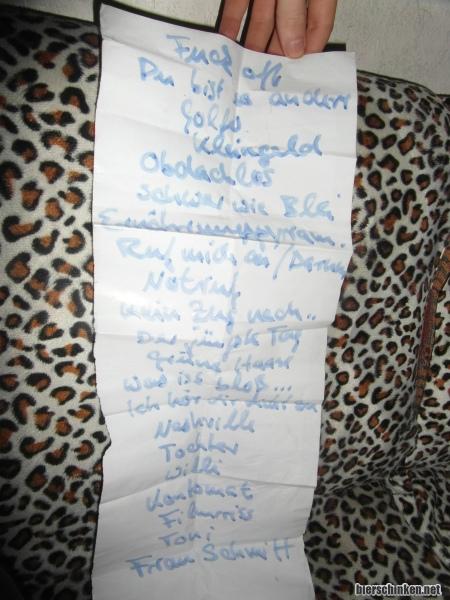 Fuck off
Du bist so anders
Golfo
Kleingeld
Obdachlos
schwer wie Blei
Ernährungsprogram.
Ruf mich an /
Notruf
kein Zug nach..
Der jüngste Tag
Grüne Haare
Was ist bloß...
Ich hör dir nicht zu
Nashville
Tochter
Willi
Kontomat
Filmriss
Toni
Frau Schmitt
bierschinken.net